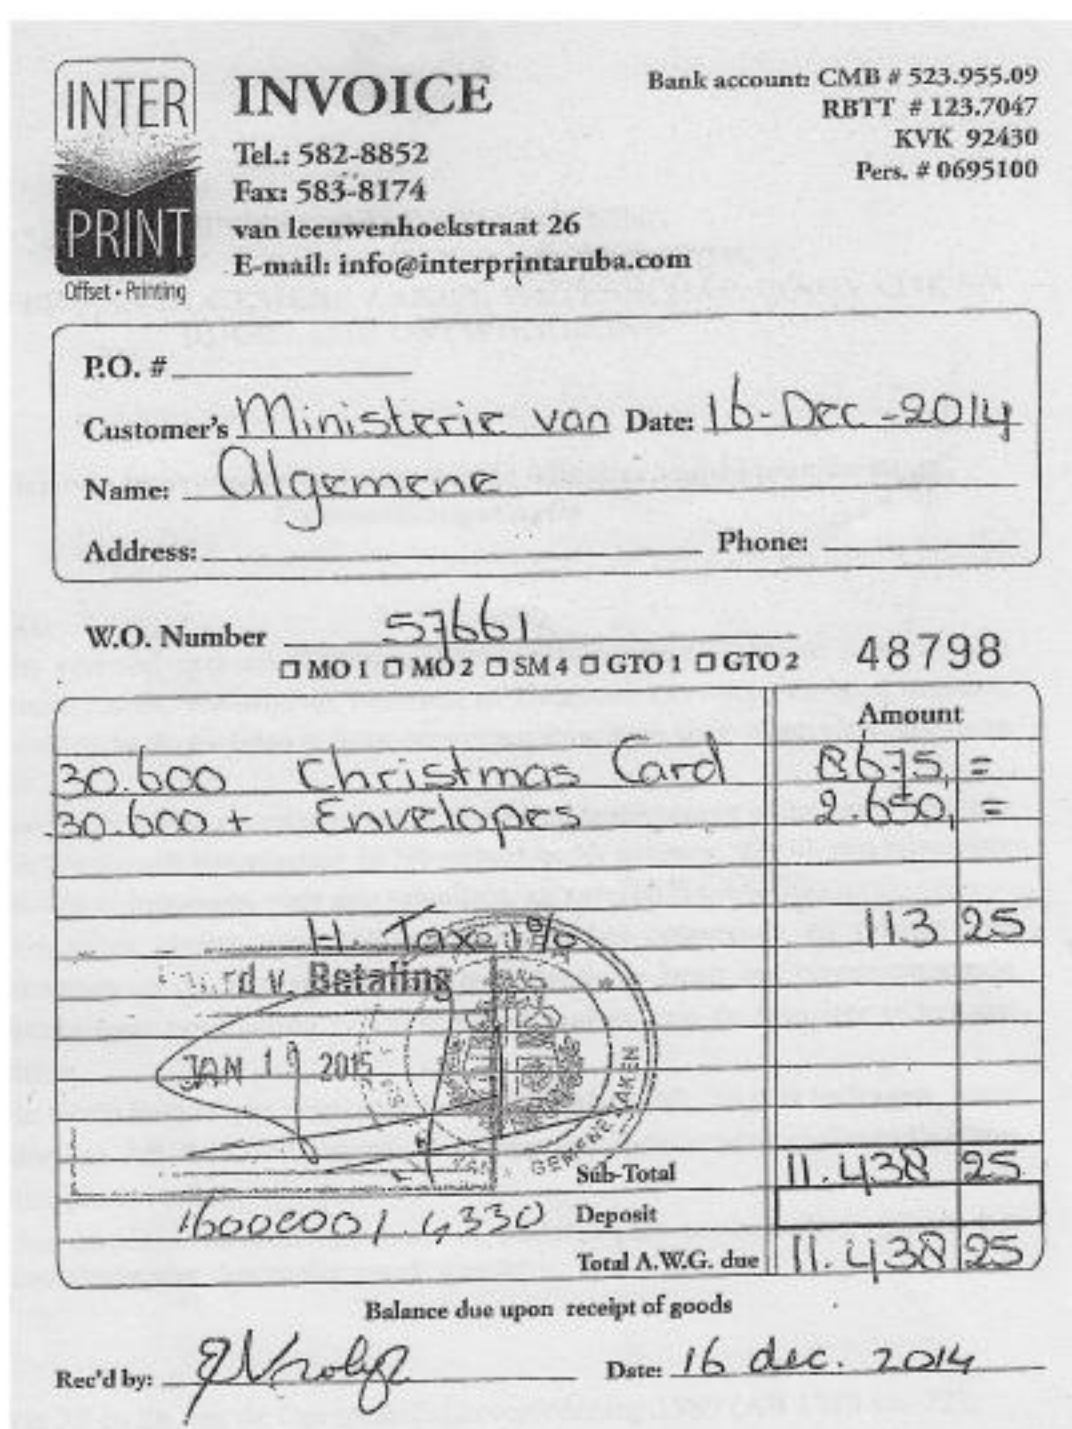 INTER
PRINT
Offset • Printing
INVOICE
Tel.: 582-8852
Fax: 583-8174
van leeuwenhoekstraat 26
E-mail: info@interprintaruba.com
Bank account: CMB # 523.955.09
RBTT # 123.7047
KVK 92430
Pers. # 0695100
P.O. #
Customer's Ministerie van Date: 16-Dec-2014
Name: Algemene
Address: Phone:
W.O. Number 57661
☐ MO 1 ☐ MO 2 ☐ SM 4 ☐ GTO 1 ☐ GTO 2
48798
Amount
30.600 Christmas Card 8675,=
30.600 + Envelopes 2.650,=
H. Tax 1% 113 25
v. Betaling
JAN 19 2015
Sub-Total 11.438 25
4330 Deposit
Total A.W.G. due 11.438 25
Balance due upon receipt of goods
Rec'd by: Date: 16 dec. 2014